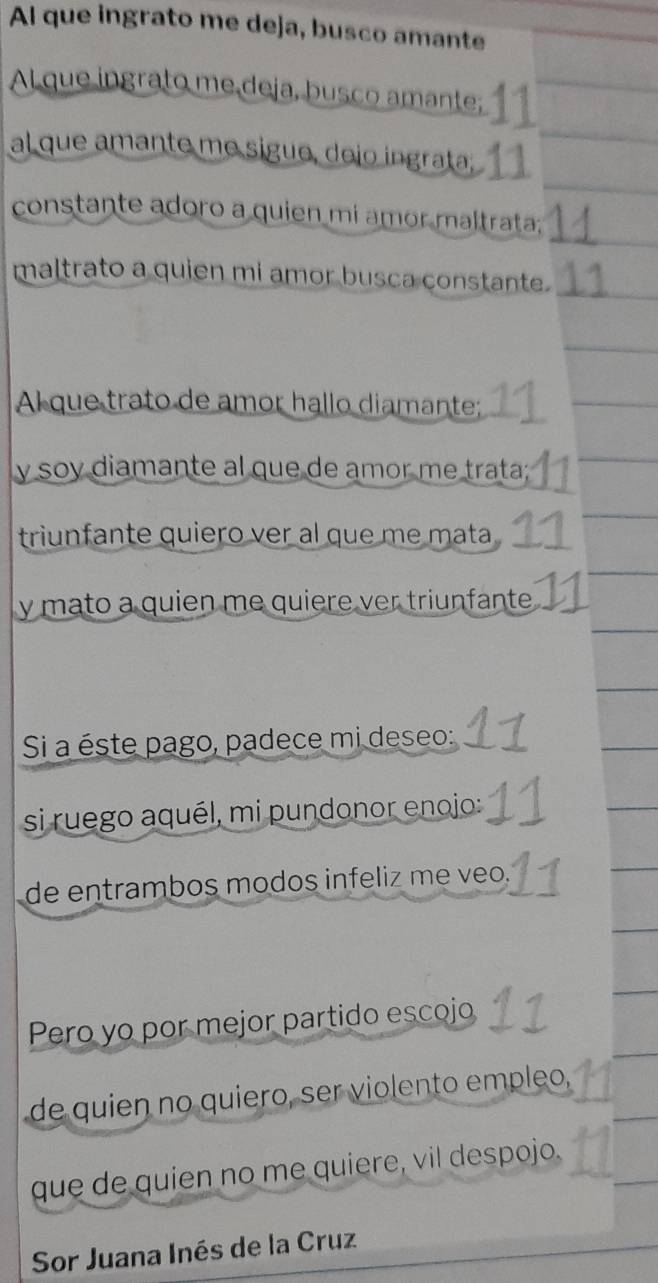 Al que ingrato me deja, busco amante
Al que ingrato me deja, busco amante; 11
al que amante me sigue, dejo ingrata; 11
constante adoro a quien mi amor maltrata; 11
maltrato a quien mi amor busca constante. 11
Al que trato de amor hallo diamante; 11
y soy diamante al que de amor me trata; 11
triunfante quiero ver al que me mata 11
y mato a quien me quiere ver triunfante. 11
Si a éste pago, padece mi deseo: 11
si ruego aquél, mi pundonor enojo: 11
de entrambos modos infeliz me veo. 11
Pero yo por mejor partido escojo 11
de quien no quiero, ser violento empleo, 11
que de quien no me quiere, vil despojo. 11
Sor Juana Inés de la Cruz